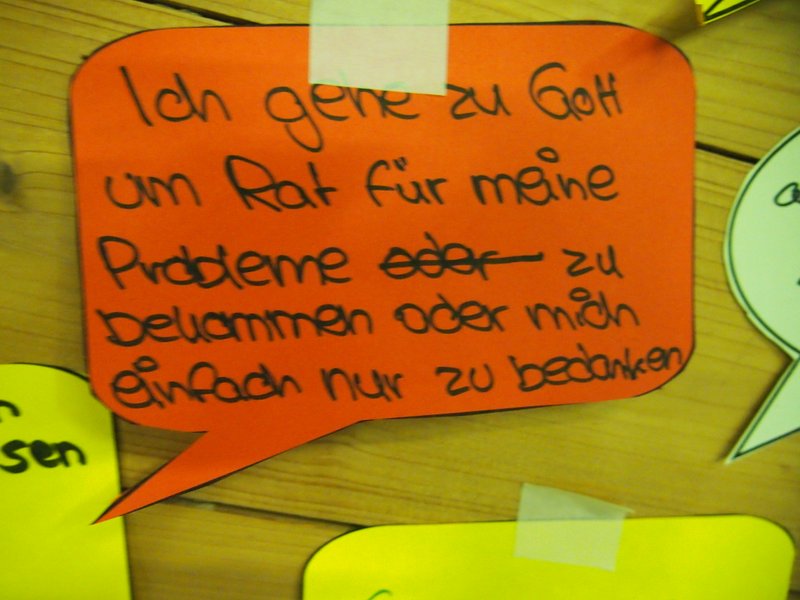 Ich gehe zu Gott
um Rat für meine
Probleme oder zu
bekommen oder mich
einfach nur zu bedanken
sen